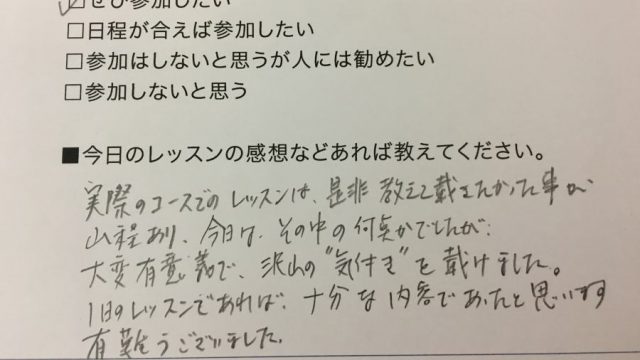 ☑ぜひ参加したい
□日程が合えば参加したい
□参加はしないと思うが人には勧めたい
□参加しないと思う
■今日のレッスンの感想などあれば教えてください。
実際のコースでのレッスンは、是非教えて戴きたかった事が
山程あり、今日は、その中の何点かでしたが、
大変有意義で、沢山の"気付き"を戴けました。
1日のレッスンであれば、十分な内容であったと思います
有難うございました。